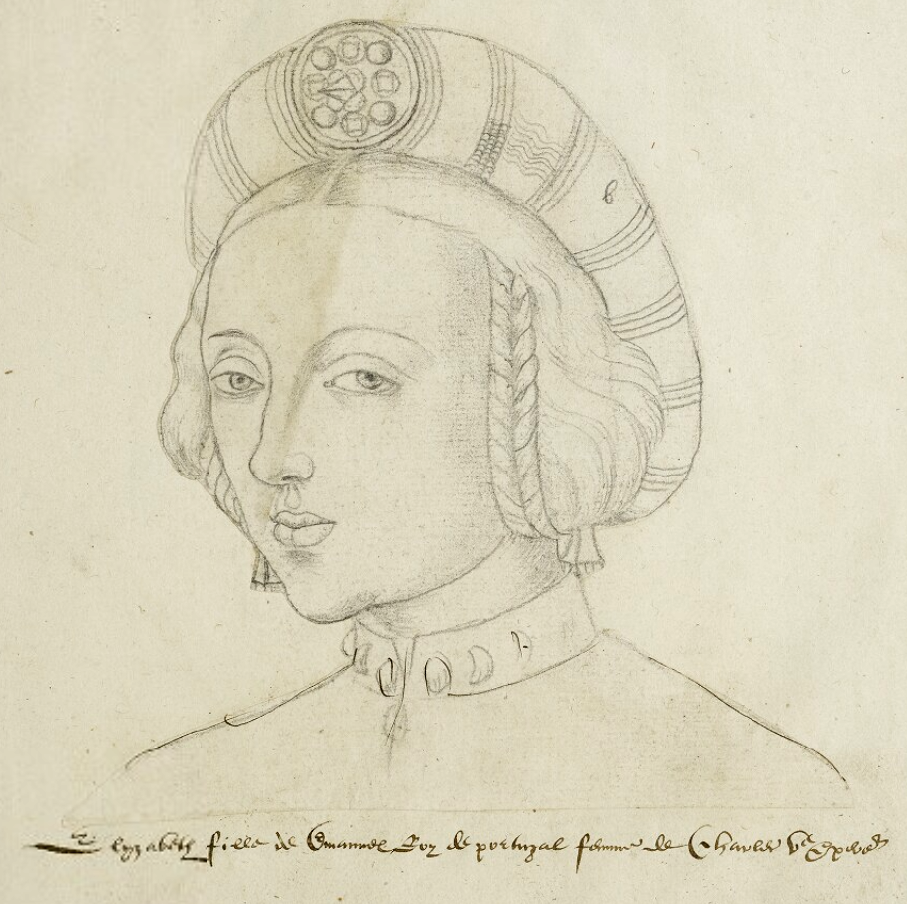 b
Elyzabeth fille de Emanuel Roy de portugal femme de Charles Ve